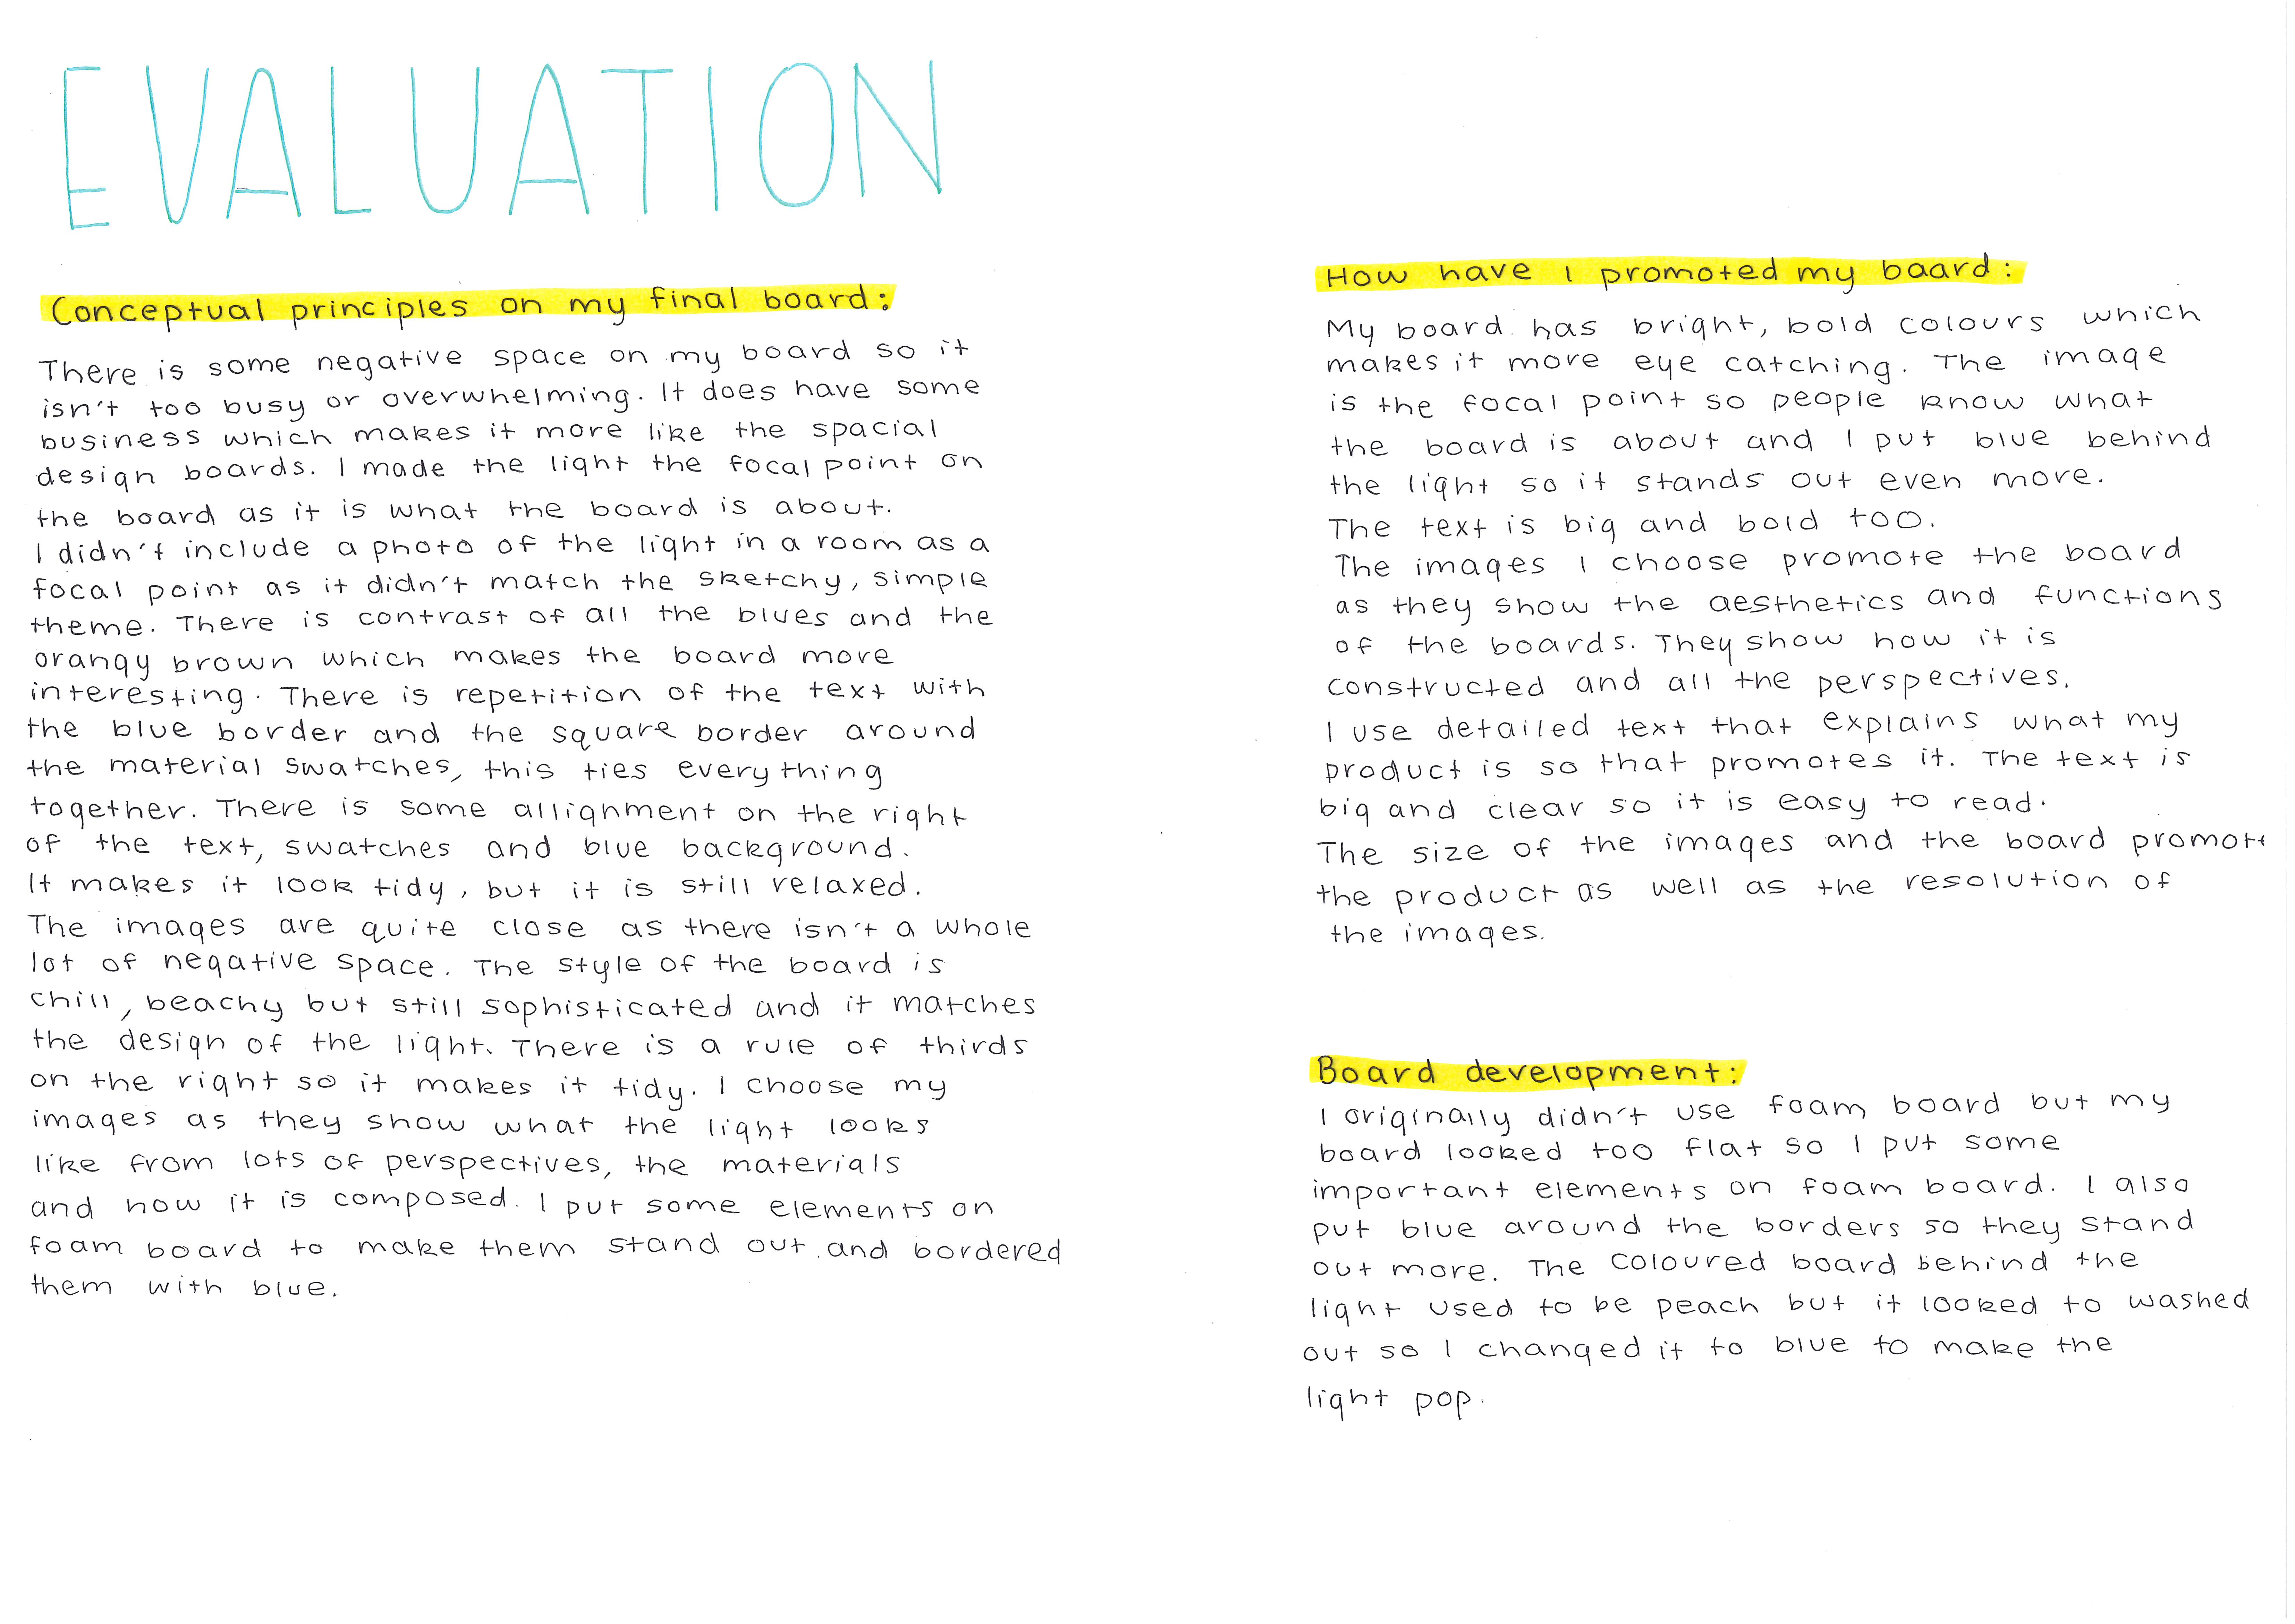 EVALUATION
Conceptual principles on my final board:
There is some negative space on my board so it
isn't too busy or overwhelming. It does have some
business which makes it more like the spacial
design boards. I made the light the focal point on
the board as it is what the board is about.
I didn't include a photo of the light in a room as a
focal point as it didn't match the sketchy, simple
theme. There is contrast of all the blues and the
orangy brown which makes the board more
interesting. There is repetition of the text with
the blue border and the square border around
the material swatches, this ties everything
together. There is some allignment on the right
of the text, swatches and blue background.
It makes it look tidy, but it is still relaxed.
The images are quite close as there isn't a whole
lot of negative space. The style of the board is
chill, beachy but still sophisticated and it matches
the design of the light. There is a rule of thirds
on the right so it makes it tidy. I choose my
images as they show what the light looks
like from lots of perspectives, the materials
and how it is composed. I put some elements on
foam board to make them stand out and bordered
them with blue.
How have I promoted my board:
My board has bright, bold colours which
makes it more eye catching. The image
is the focal point so people know what
the board is about and I put blue behind
the light so it stands out even more.
The text is big and bold too.
The images I choose promote the board
as they show the aesthetics and functions
of the boards. They show how it is
constructed and all the perspectives.
I use detailed text that explains what my
product is so that promotes it. The text is
big and clear so it is easy to read.
The size of the images and the board promote
the product as well as the resolution of
the images.
Board development:
I originally didn't use foam board but my
board looked too flat so I put some
important elements on foam board. I also
put blue around the borders so they stand
out more. The coloured board behind the
light used to be peach but it looked to washed
out so I changed it to blue to make the
light pop.